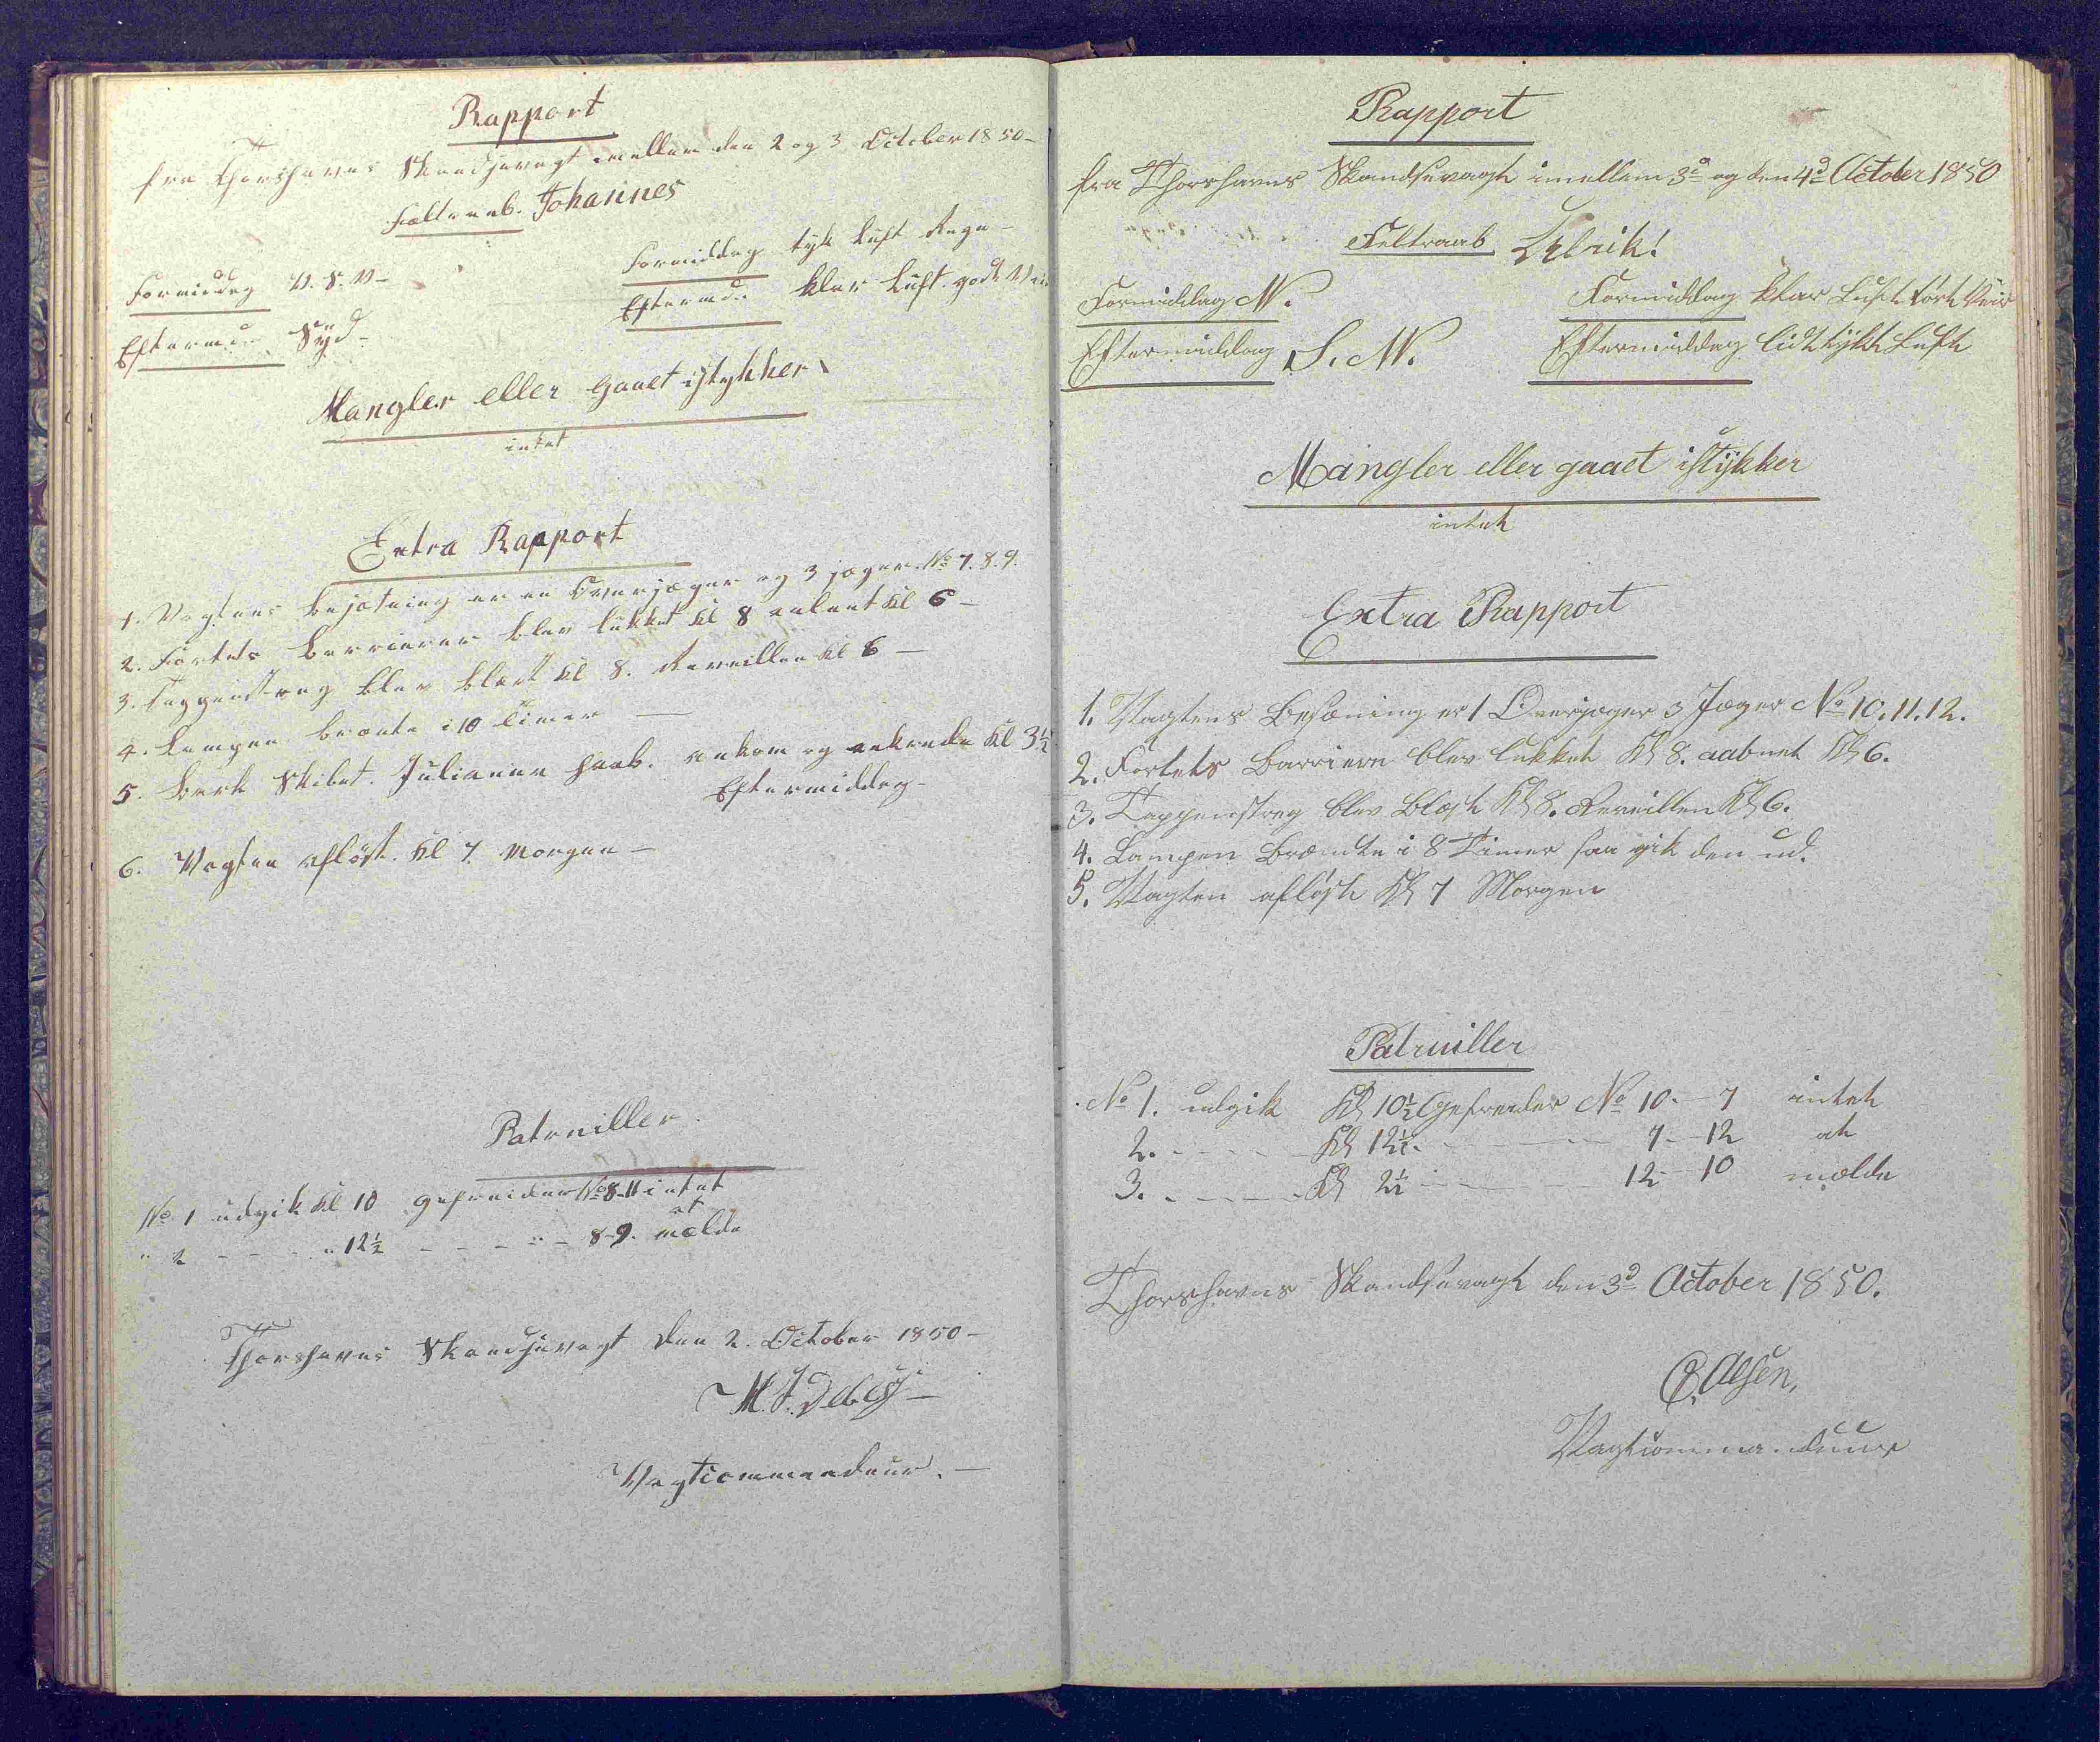 Rapport
fra Thorshavns Skandsevagt imellem den 2 og 3 October 1850-
Feltraab. Johannes
Formiddag V. S. V- Formiddag tyk Luft Regn-
Eftermd. Syd- Eftermd. klar Luft. godt Veir
Mangler eller gaaet istykker
intet
Extra Rapport
1. Vagtens besætning er en Overjæger og 3 jæger. No 7. 8. 9.
2. Fortets Barrierer blev lukket Kl 8 aabnet Kl 6-
3. Tappenstreg blev blæst Kl 8. Reveillen Kl 6-
4. Lampen brænte i 10 Timer-
5. Bark Skibet. Juliane Haab. ankom og ankrede Kl 3½
Eftermiddag-
6. Vagten afløst. Kl 7 Morgen-
Patruiller.
No 1 udgik Kl 10 gefreider No 8-11 intet
" 2 - - - " 12½ - - - " - 8-9. at mælde
Thorshavns Skandsevagt den 2. October 1850-
M. J. Debes-
Vagtcommandeur.-
Rapport
fra Thorshavns Skandsevagt imellem 3d og den 4d October 1850
Feltraab Ulrik!
Formiddag N. Formiddag klar Luft tørt Veir
Eftermiddag S. W. Eftermiddag lidt tykt Luft
Mangler eller gaaet istykker
intet
Extra Rapport
1. Vagtens Besæning er 1 Overjæger 3 Jæger No 10. 11. 12.
2. Fortets Barriere blev lukket Kl 8. aabnet Kl 6.
3. Tappenstreg blev Blæst Kl 8. Reveillen Kl 6.
4. Lampen Brændte i 8 Timer saa gik den ud.
5. Vagten afløst Kl 7 Morgen
Patruiller
No 1. udgik Kl 10½ Gefreider No 10.- 7 intet
2. - - - - Kl 12½. - - - - 7.- 12 at
3. - - - - Kl 2½ - - - - 12- 10 mælde
Thorshavns Skandsevagt den 3d October 1850.
O. Olsen,
Vagtcommandeur